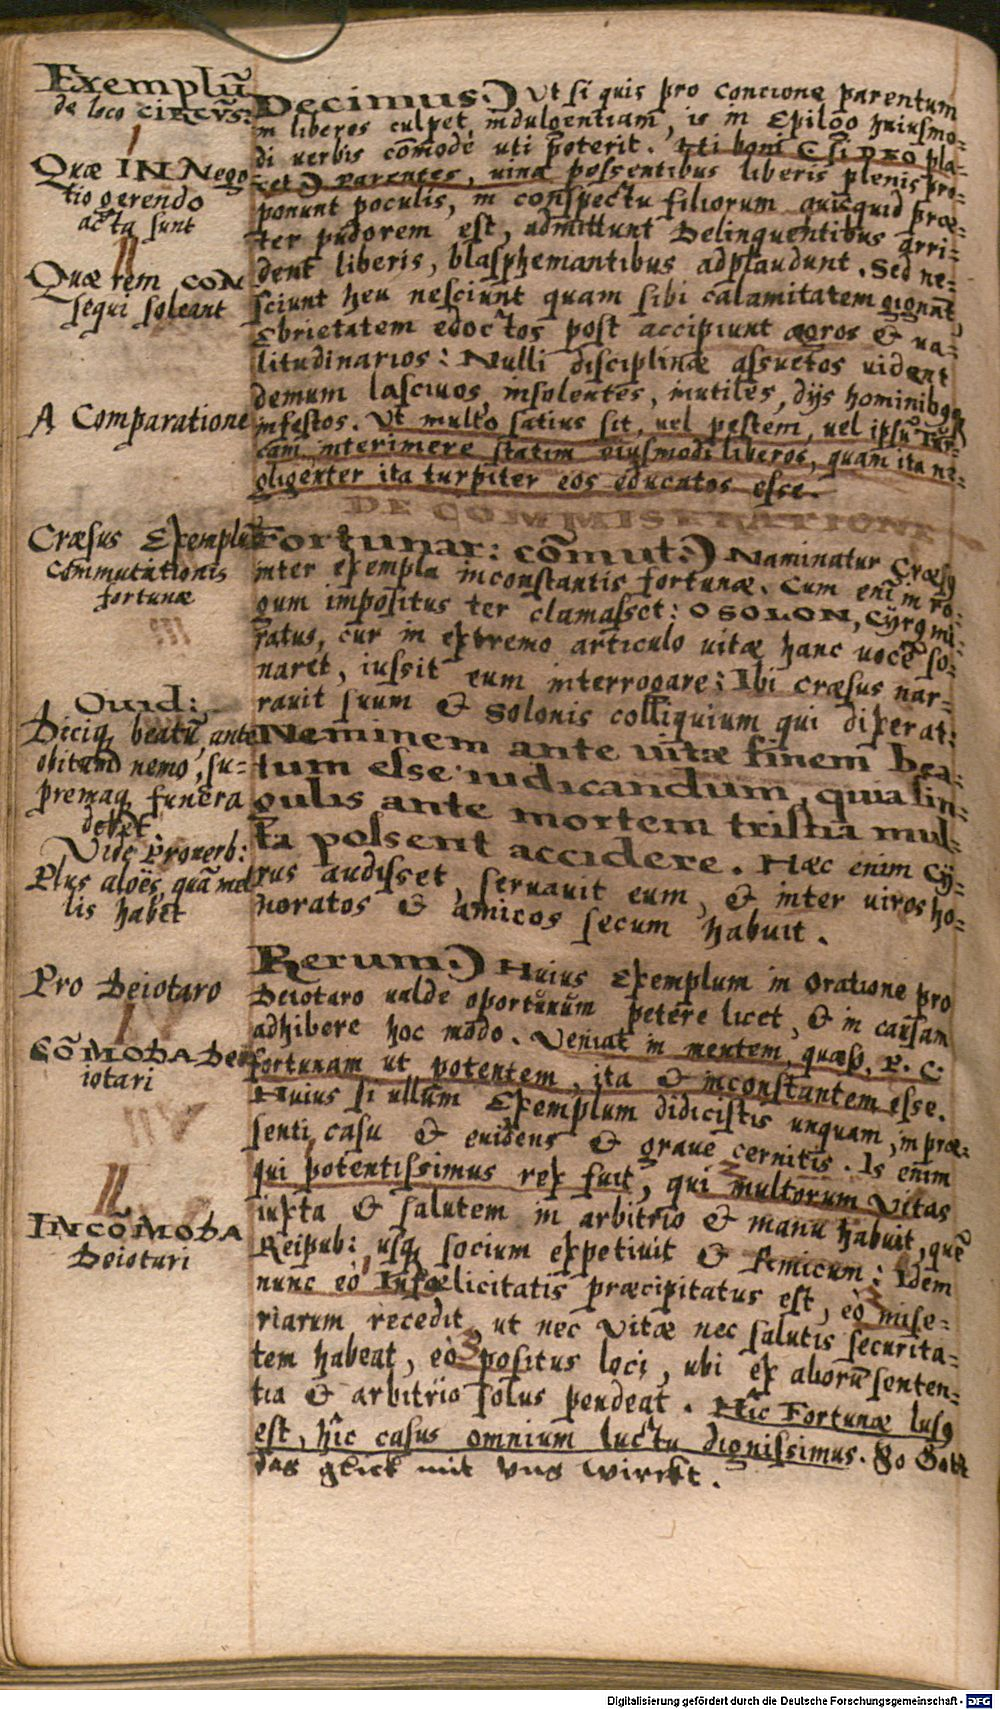 Exemplū
de loco CIRCVS:
I
Quæ IN Nego
tio gerendo
acta sunt
II
Quæ rem CON
sequi soleant
A Comparatione
Cræsus Exemplū
commutationis
fortunæ
Ouid:
Diciq, beatū, ante
obitum nemo, su-
premaq funera
debet.
Vide Prouerb:
Plus aloës, quā mel
lis habet
Pro Deiotaro
I
CŌMODA Dei
iotari
II
INCŌMODA
Deiotari
Decimus.) Ut si quis pro concione parentum
in liberos culpet indulgentiam, is in Epilogo huiusmo-
di uerbis cōmodè uti poterit. Uti boni Esi DEO pla-
cet) Parentes, uina poscentibus liberis plenis pro-
ponunt poculis, in conspectu filiorum quicquid præ-
ter pudorem est, admittunt Delinquentibus arri-
dent liberis, blasphemantibus adplaudunt. Sed ne-
sciunt heu nesciunt quam sibi calamitatem gignāt,
Ebrietatem edoctos post accipiunt ægros & ua-
litudinarios: Nulli disciplinæ assuetos uident
demum lasciuos, insolentes, inutiles, dijs hominibꝫ
infestos. Ut multo satius sit, uel pestem, uel ipsū Tur-
cam interimere statim eiusmodi liberos, quam ita ne-
gligenter ita turpiter eos educatos esse.
DE COMMISERATIONE
Fortunar: cōmut.) Naminatur Cræsꝰ
inter exempla inconstantis fortunæ. Cum enim ro-
gum impositus ter clamasset: O SOLON, Cyrꝰ mi-
ratus, cur in extremo articulo uitæ hanc uocē so-
naret, iussit eum interrogare: Ibi Cræsus nar-
rauit suum & Solonis colliquium qui dixerat:
Neminem ante uitæ finem bea-
tum esse iudicandum, quia sin-
gulis ante mortem tristia mul-
ta possent accidere. Hæc enim Cy-
rus audisset, seruauit eum, & inter uiros ho-
noratos & amicos secum habuit.
Rerum.) Huius Exemplum in Oratione pro
Deiotaro ualde oportunum petere licet, & in causam
adhibere hoc modo. Veniat in mentem, quæso, P. C.
fortunam ut potentem, ita & inconstantem esse.
Huius si ullum Exemplum didicistis unquam, in præ-
senti casu & euidens & graue cernitis. Is enim
qui potentissimus rex fuit, qui multorum Vitas
iuxta & salutem in arbitrio & manu habuit, quē
Reipub: usq socium expetiuit & Amicum: Idem
nunc eò Infælicitatis præcipitatus est, eò mise-
riarum recedit, ut nec Vitæ nec salutis securita-
tem habeat, eò positus loci, ubi ex aliorū senten-
tia & arbitrio solus pendeat. Hîc Fortunæ lusꝰ
est, hîc casus omnium luctu dignissimus. So Gott
das glick mit vns wirckt.
Digitalisierung gefördert durch die Deutsche Forschungsgemeinschaft - DFG